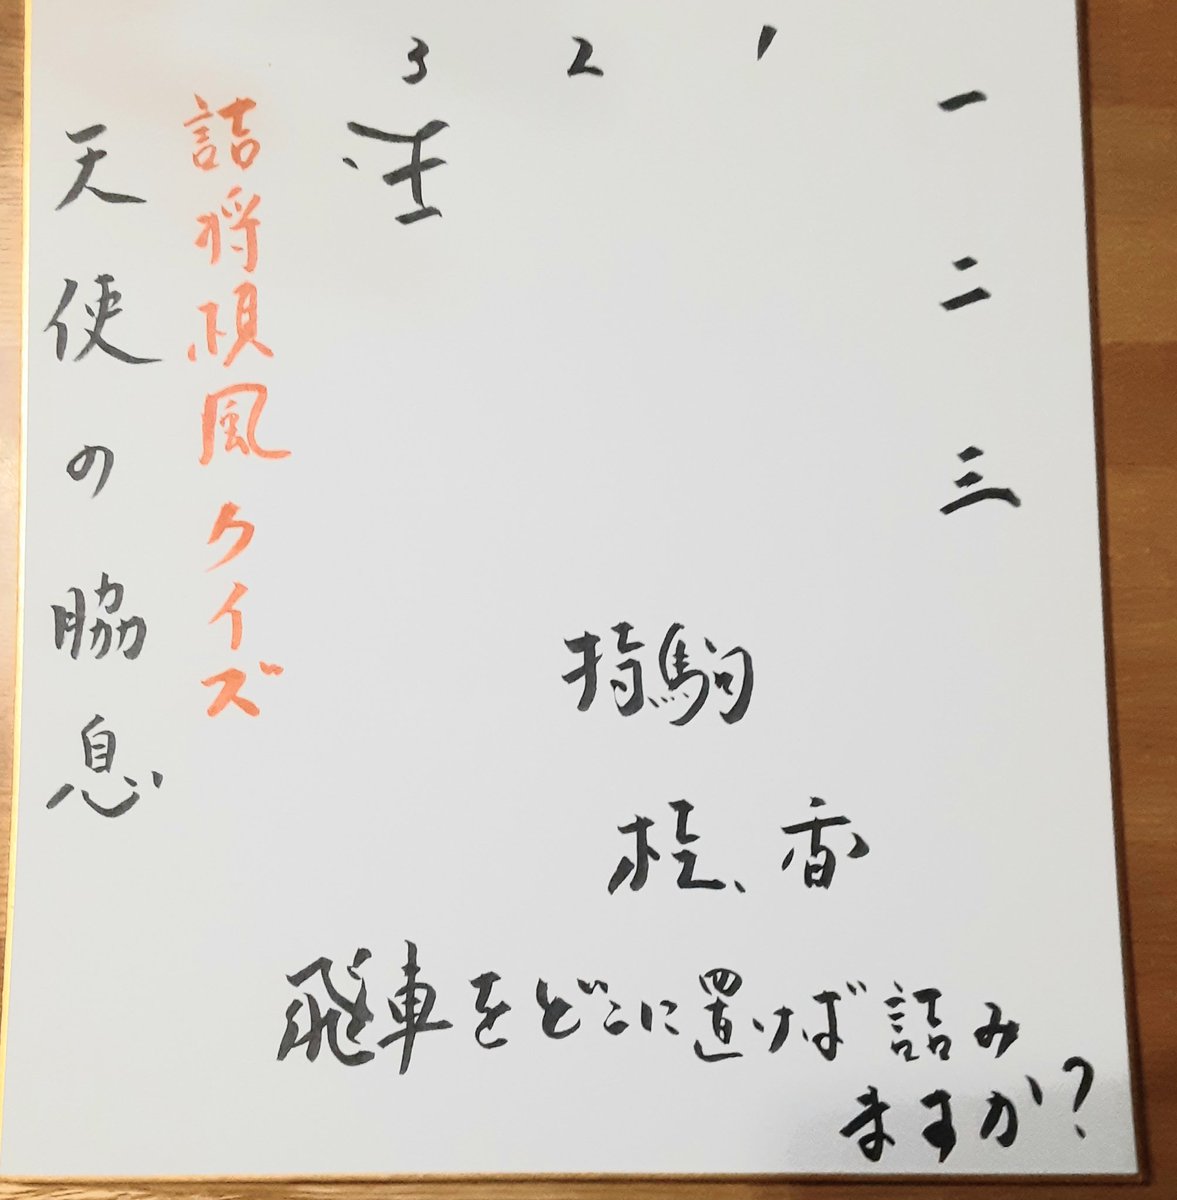 3 2 1
一
二
三
玉
持駒
桂、香
飛車をどこに置けば詰み
ますか?
詰将棋風クイズ
天使の脇息